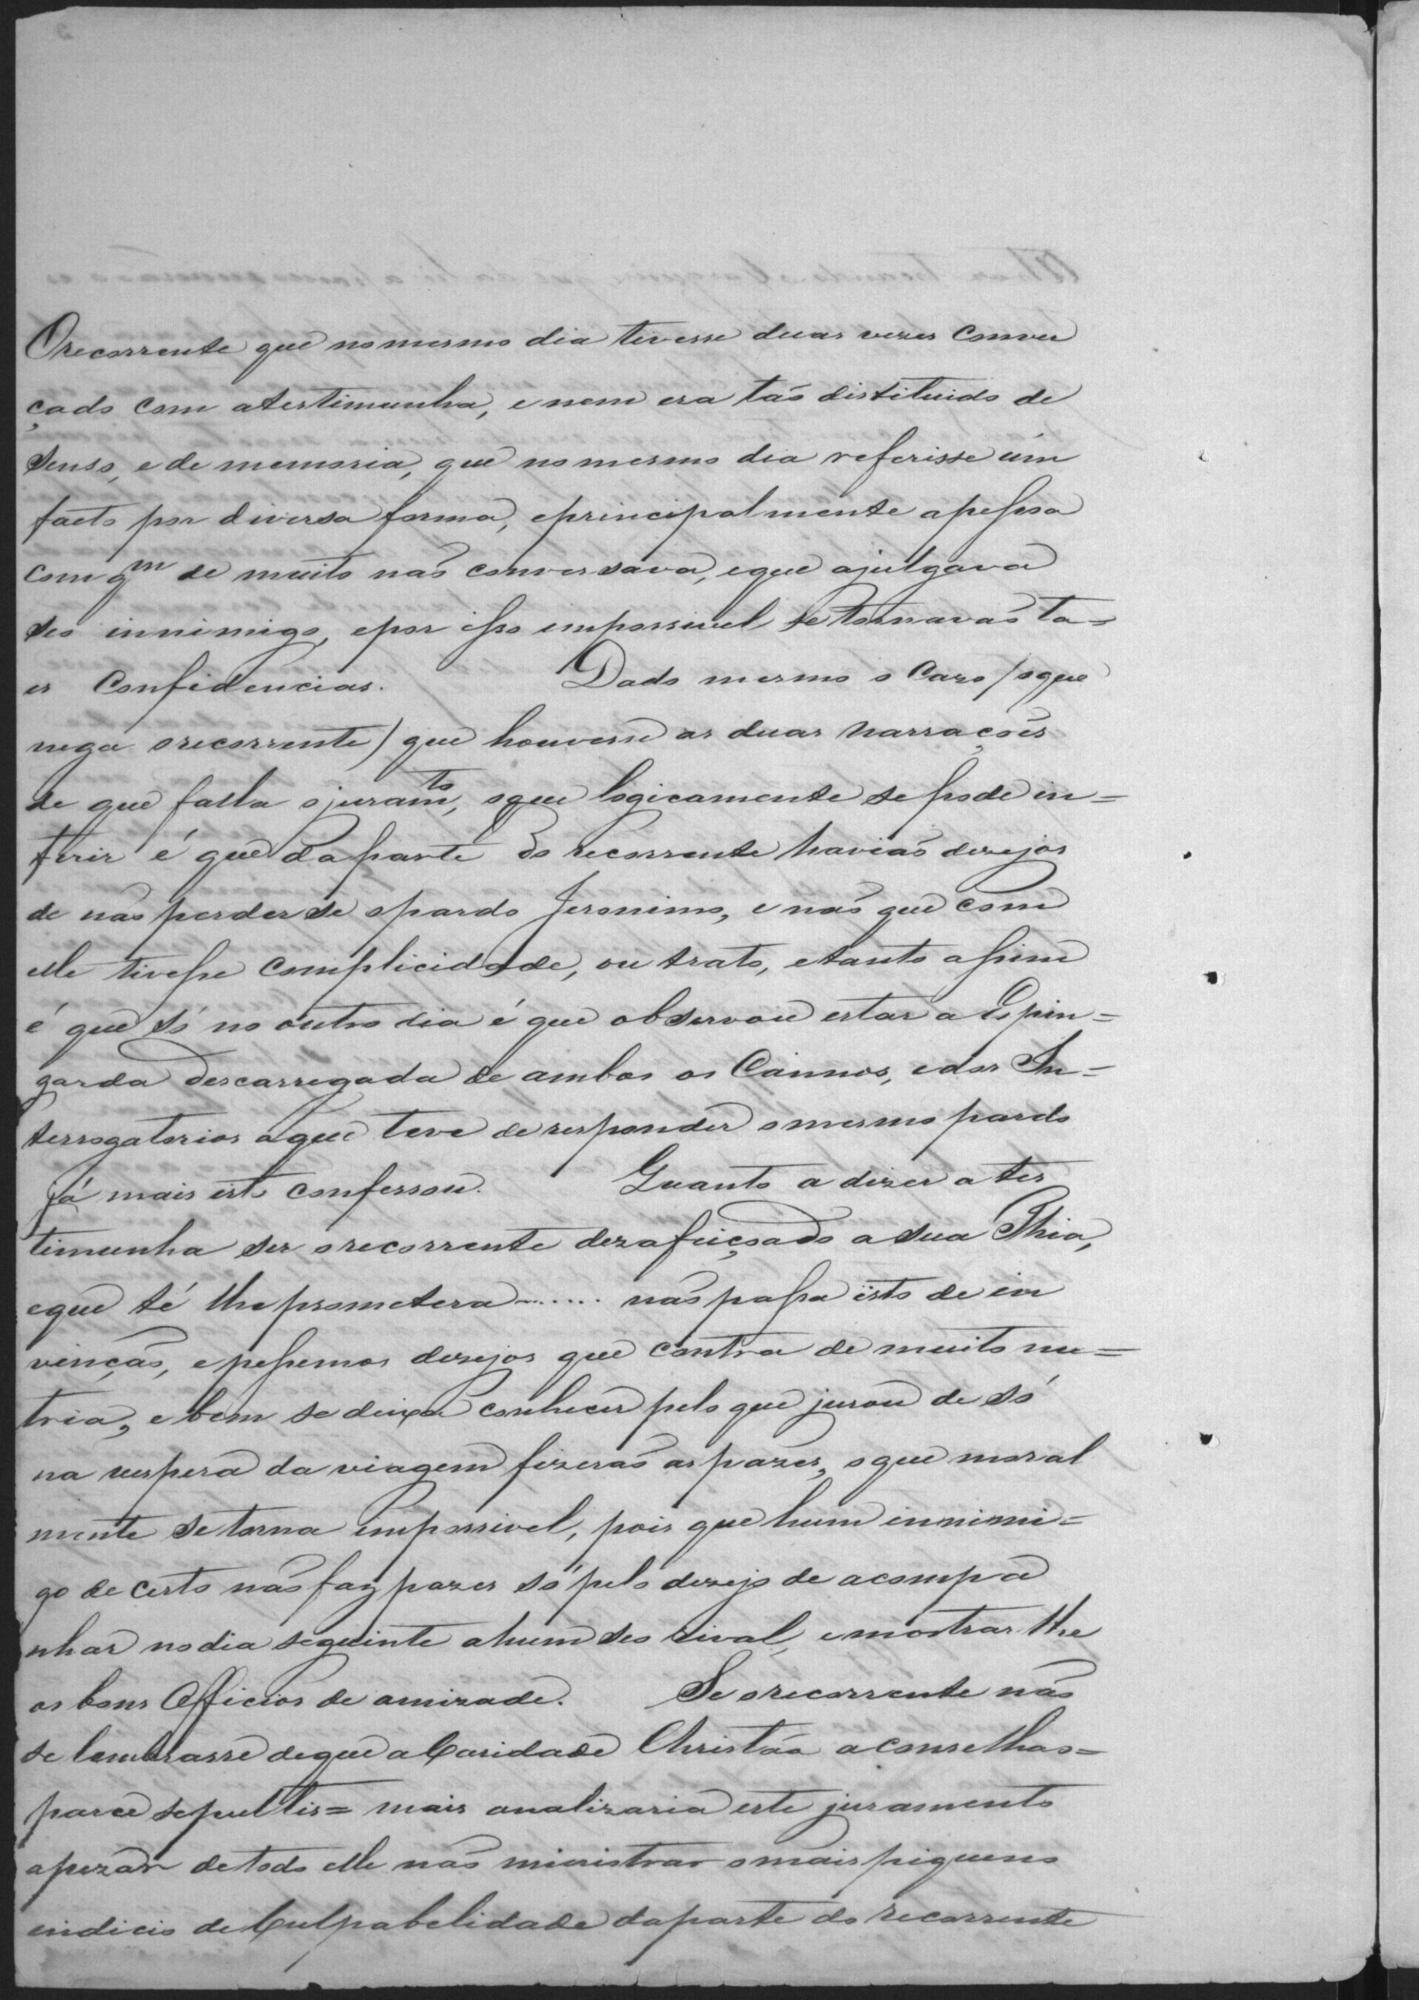 O recorrente que no mesmo dia tivesse duas vezes conver
çado com a testimunha, e nem era tão distituido de
senso, e de memoria, que no mesmo dia referisse úm
facto por diversa forma, e principalmente a peſsoa
com q.m de muito não conversava, e que o julgava
seo innimigo, e por iſso impossivel se tornavão ta=
es Confidencias. Dado mesmo o Cazo (o que
nega o recorrente) que houvesse as duas narrações
de que falla o juram.to, o que logicamente se pode in=
ferir é que da parte do recorrente havião dezejos
de não perder se o pardo Jeronimo, e não que com
elle tiveſse complicidade, ou trato, e tanto aſsim
é que só no outro dia é que observou estar a Espin=
garda descarregada de ambos os Cannos, e dos In=
terrogatorios a que teve de responder o mesmo pardo
já mais isto confessou. Quanto a dizer a tes
timunha ser o recorrente dezafeiçoado a sua Thia,
e que té lhe prometera ...... não paſsa isto de in
venção, e peſsimos dezejos que contra de muito nu=
tria, e bem se deixa conhecer pelo que jurou de só
na vespera da viagem fizerão as pazes, o que moral
mente se torna impossivel, pois que hum innimi=
go de certo não faz pazes só pelo dezejo de acompa
nhar no dia seguinte a hum seo rival, e mostrar lhe
os bons Officios de amizade. Se o recorrente não
se lembrasse de que a Caridade Christãa aconselha=
parce sepultis= mais analizaria este juramento
apezar de todo elle não ministrar o mais piqueno
indicio de Culpabelidade da parte do recorrente